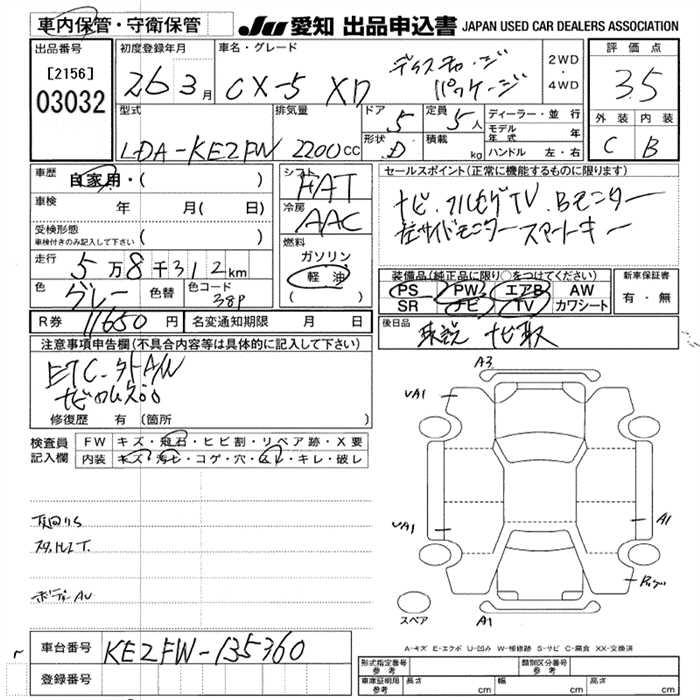 車内保管・守衛保管
JU 愛知 出品申込書 JAPAN USED CAR DEALERS ASSOCIATION
出品番号
[2156]
03032
初度登録年月
26 3月
車名・グレード
CX-5 XD
ディスチャージ
パッケージ
2WD
・
4WD
評価点
3.5
外装 内装
C B
型式
LDA-KE2FW
排気量
2200cc
ドア
5
形状
D
定員
5人
積載
kg
ディーラー・並行
モデル年式 年
ハンドル 左・右
車歴
自家用・( )
車検 年 月( 日)
受検形態
車検付きのみ記入して下さい ( )
走行
5万8千312km
色
グレー
色替
色コード
38P
R券 11650円
名変通知期限 月 日
シフト
FAT
冷房
AAC
燃料
ガソリン
軽油
( )
セールスポイント(正常に機能するものに限ります)
ナビ.フルセグTV.Bモニター
左サイドモニター スマートキー
装備品(純正品に限り○をつけてください)
PS PW エアB AW
SR ナビ TV カワシート
新車保証書
有・無
後日品
取説 ナビ取
注意事項申告欄(不具合内容等は具体的に記入して下さい)
ETC.社外A/W
修復歴 有 (箇所 )
検査員
記入欄
FW キズ・飛石・ヒビ割・リペア跡・X要
内装 キズ・汚レ・コゲ・穴・スレ・キレ・破レ
A3
UA1
UA1
A1
A1
スペア
A-キズ E-エクボ U-凹み W-補修跡 S-サビ C-腐食 XX-交換済
車台番号 KE2FW-135360
登録番号
型式指定番号
参考
類別区分番号
参考
車庫証明用
参考
長さ cm 幅 cm 高さ cm